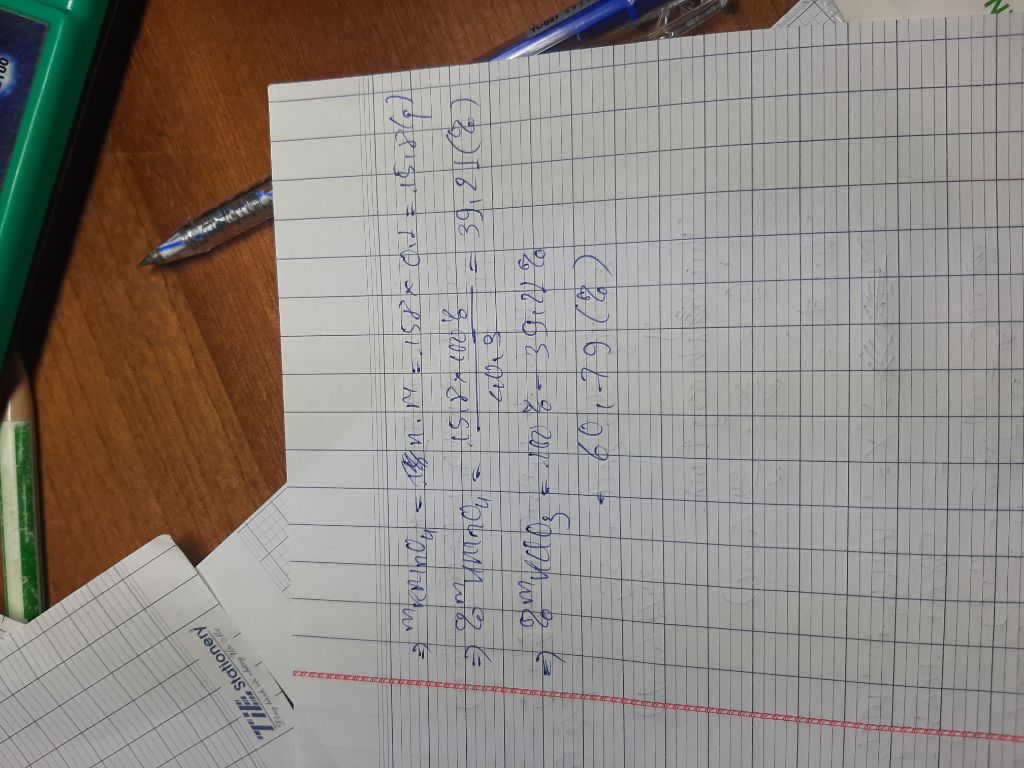 => mKMnO4 = n.M = 158 × 0,1 = 15,8(g)
=> %mKMnO4 = 15,8 × 100% / 40,3 = 39,21(%)
=> %mKClO3 = 100% - 39,21%
= 60,79 (%)
TIE Stationery